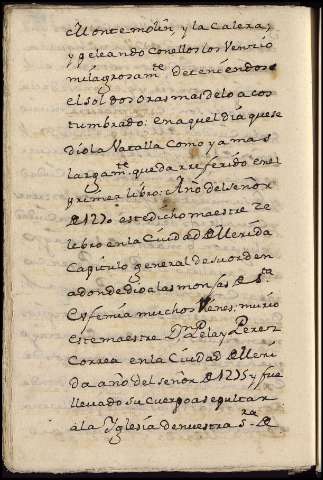 Montemolin, y la Calera;
y peleando Conellos los Venzio
milagrosam.te deteniendose
el sol dos oras mas delo acos
tumbrado: en aquel dia quese
dio la Vatalla Como ya mas
largam.te queda rreferido enel
primer libro: Año del Señor
de 1270 este dicho maestre Ze
lebro en la Ciudad de Merida
Capitulo general de su orden
adonde dio alas monjas de S.ta
Eufemia muchos Vienes; murio
este maestre D.n Pelay Perez
Correa en la Ciudad de Meri
da año del señor de 1275 y fue
llevado su cuerpo a sepultar
ala Yglesia de nuestra S.ra de